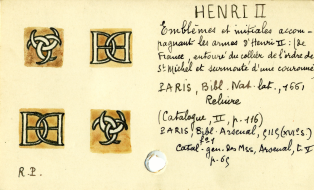 HENRI II
Emblèmes et initiales accom-
pagnant les armes d'Henri II : de
France, entouré du collier de l'ordre de
St Michel et surmonté d'une couronne
PARIS, Bibl. Nat. lat., 1551
Reliure
(Catalogue, II, p. 116)
PARIS, Bibl. Arsenal, 5115 (XVIe s.)
Catal. gén. des Mss, Arsenal, t. V
p. 65
R.P.